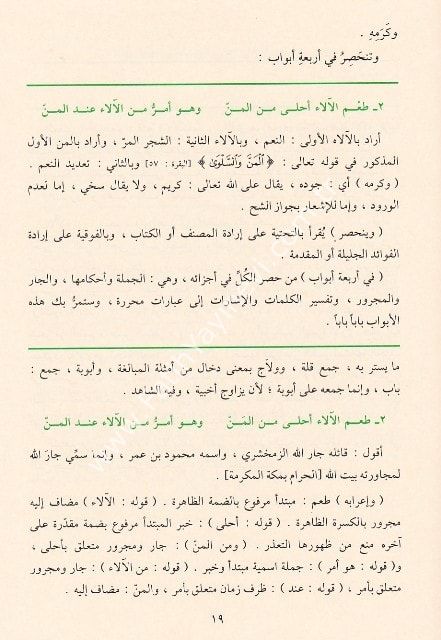 وكَرَمِهِ .
وتنحَصِرُ في أربعةِ أبواب :
٢ـ طعْم الآلاء أحلى من المنّ وهو أمرُّ من الآلاء عند المنّ
أراد بالآلاء الأولى : النعم ، وبالآلاء الثانية : الشجر المرّ ، وأراد بالمن الأول
المذكور في قوله تعالى : ﴿ ٱلْمَنَّ وَٱلسَّلْوَىٰ ﴾ [البقرة : ٥٧] وبالثاني : تعديد النعم .
( وكرمه ) أي : جوده ، يقال على الله تعالى : كريم ، ولا يقال سخي ، إما لعدم
الورود ، وإما للإشعار بجواز الشح .
( وينحصر ) يُقرأ بالتحتية على إرادة المصنف أو الكتاب ، وبالفوقية على إرادة
الفوائد الجليلة أو المقدمة .
( في أربعة أبواب ) من حصر الكُلّ في أجزائه ، وهي : الجملة وأحكامها ، والجار
والمجرور ، وتفسير الكلمات والإشارات إلى عبارات محررة ، وستمرُّ بك هذه
الأبواب باباً باباً .
ما يستر به ، جمع قلة ، وولاّج بمعنى دخال من أمثلة المبالغة ، وأبوبة ، جمع :
باب ، وإنما جمعه على أبوبة ؛ لأن يزاوج أخبية ، وفيه الشاهد .
٢ـ طعم الآلاء أحلى من المَنّ وهو أمرُّ من الآلاء عند المنّ
أقول : قائله جار الله الزمخشري ، واسمه محمود بن عمر ، وإنما سمِّي جارَ الله
لمجاورته بيت الله [الحرام بمكة المكرمة] .
( وإعرابه ) طعم : مبتدأ مرفوع بالضمة الظاهرة . ( قوله : الآلاء ) مضاف إليه
مجرور بالكسرة الظاهرة . ( قوله : أحلى ) : خبر المبتدأ مرفوع بضمة مقدّرة على
آخره منع من ظهورها التعذر . ( ومن المنّ ) : جار ومجرور متعلق بأحلى ،
و( قوله : هو أمر ) : جملة اسمية مبتدأ وخبر . ( قوله : من الآلاء ) : جار ومجرور
متعلق بأمر ، ( قوله : عند ) : ظرف زمان متعلق بأمر ، والمنّ : مضاف إليه .
١٩